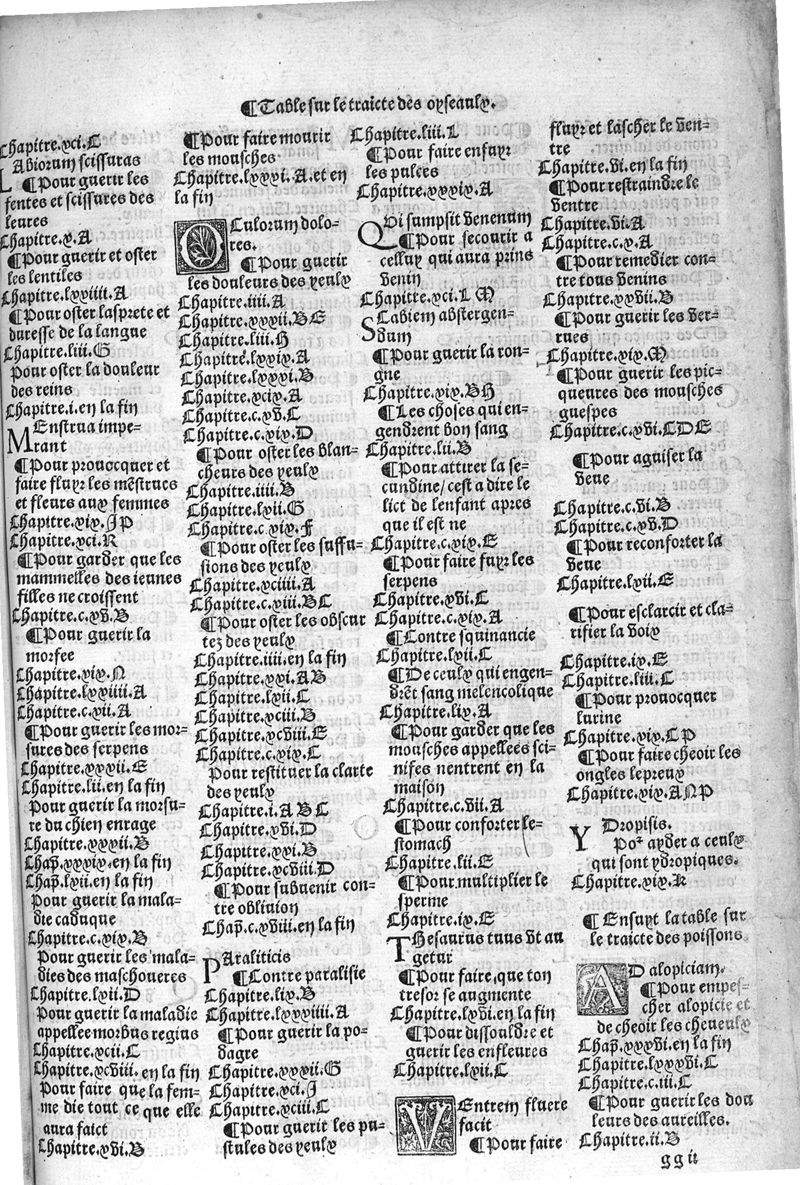 ¶Table sur le traicte des oyseaulx.
Chapitre.xci.C
LAbiorum scissuras
¶Pour guerir les
fentes et scissures des
leures
Chapitre.x.A
¶Pour guerir et oster
les lentiles
Chapitre.lxxiiii.A
¶Pour oster laspꝛete et
duresse de la langue
Chapitre.liii.G
Pour oster la douleur
des reins
Chapitre.i.en la fin
MEnstrua impe-
trant
¶Pour prouocquer et
faire fluyr les mēstrucs
et fleurs aux femmes
Chapitre.xix.IP
Chapitre.xci.K
¶Pour garder que les
mammelles des ieunes
filles ne croissent
Chapitre.c.xv.B
¶Pour guerir la
morfee
Chapitre.xix.N
Chapitre.lxxiiii.A
Chapitre.c.vii.A
¶Pour guerir les mor-
sures des serpens
Chapitre.xxxii.E
Chapitre.lii.en la fin
Pour guerir la morsu-
re du chien enrage
Chapitre.xxxii.B
Chap̄.xxxix.en la fin
Chap̄.lxii.en la fin
Pour guerir la mala-
die caduque
Chapitre.c.xix.B
Pour guerir les mala-
dies des maschoueres
Chapitre.lxii.D
Pour guerir la maladie
appellee morbus regius
Chapitre.xcii.C
Chapitre.xcviii.en la fin
Pour faire que la fem-
me die tout ce que elle
aura faict
Chapitre.xvi.B
¶Pour faire mourir
les mousches
Chapitre.lxxxi.A.et en
la fin
OCulorum dolo-
res.
¶Pour guerir
les douleurs des yeulx
Chapitre.iiii.A
Chapitre.xxxii.BE
Chapitre.liii.H
Chapitre.lxxix.A
Chapitre.lxxxi.B
Chapitre.xcix.A
Chapitre.c.xv.C
Chapitre.c.xix.D
¶Pour oster les blan-
cheurs des yeulx
Chapitre.iiii.B
Chapitre.lxii.G
Chapitre.c.xix.F
¶Pour oster les suffu-
sions des yeulx
Chapitre.xciiii.A
Chapitre.c.xiii.BC
¶Pour oster les obscur
tez des yeulx
Chapitre.iiii.en la fin
Chapitre.xvi.AB
Chapitre.lxii.C
Chapitre.xciii.B
Chapitre.xcviii.E
Chapitre.c.xix.C
Pour restituer la clarte
des yeulx
Chapitre.i.ABC
Chapitre.xvi.D
Chapitre.xxi.B
Chapitre.xcviii.D
¶Pour subuenir con-
tre obliuion
Chap̄.c.xviii.en la fin
PAraliticis
¶Contre paralisie
Chapitre.lix.B
Chapitre.lxxxiiii.A
¶Pour guerir la po-
dagre
Chapitre.xxxii.G
Chapitre.xci.I
Chapitre.xciii.C
¶Pour guerir les pu-
stules des yeulx
Chapitre.liii.L
¶Pour faire enfuyr
les pulces
Chapitre.xxxix.A
QVi sumpsit venenum
¶Pour secourir a
celluy qui aura prins
venin
Chapitre.xci.LM
SCabiem abstergen-
dum
¶Pour guerir la ron-
gne
Chapitre.xix.BH
¶Les choses qui en-
gendrent bon sang
Chapitre.lii.B
¶Pour attirer la se-
cundine/cest a dire le
lict de lenfant apres
que il est ne
Chapitre.c.xix.E
¶Pour faire fuyr les
serpens
Chapitre.xvi.C
Chapitre.c.xix.A
¶Contre squinancie
Chapitre.lxii.C
¶De ceulx qui engen-
drēt sang melencolique
Chapitre.lix.A
¶Pour garder que les
mousches appellees sci-
nifes nentrent en la
maison
Chapitre.c.vii.A
¶Pour conforter le-
stomach
Chapitre.lii.E
¶Pour multiplier le
sperme
Chapitre.ix.E
THesaurus tuus vt au
getur
¶Pour faire,que ton
tresor se augmente
Chapitre.lxvi.en la fin
¶Pour dissouldre et
guerir les enfleures
Chapitre.lxii.C
VEntrem fluere
facit
¶Pour faire
fluyr et lascher le ven-
tre
Chapitre.vi.en la fin
¶Pour restraindre le
ventre
Chapitre.vi.A
Chapitre.c.x.A
¶Pour remedier con-
tre tous venins
Chapitre.xxvii.B
¶Pour guerir les ver-
rues
Chapitre.xix.M
¶Pour guerir les pic-
queures des mousches
guespes
Chapitre.c.xvi.CDE
¶Pour aguiser la
veue
Chapitre.c.vi.B
Chapitre.c.xv.D
¶Pour reconforter la
veue
Chapitre.lxii.E
¶Pour esclarcir et cla-
rifier la voix
Chapitre.ix.E
Chapitre.liii.C
¶Pour prouocquer
lurine
Chapitre.xix.CP
¶Pour faire cheoir les
ongles lepreux
Chapitre.xix.ANP
YDropisis.
Poꝛ ayder a ceulx
qui sont ydropiques.
Chapitre.xix.K
¶ Ensuyt la table sur
le traicte des poissons
AD alopiciam.
¶Pour empes-
cher alopicie et
de cheoir les cheueulx
Chap̄.xxxvi.en la fin
Chapitre.lxxxvi.C
Chapitre.c.iii.C
¶Pour guerir les dou
leurs des aureilles.
Chapitre.ii.B
gg ii